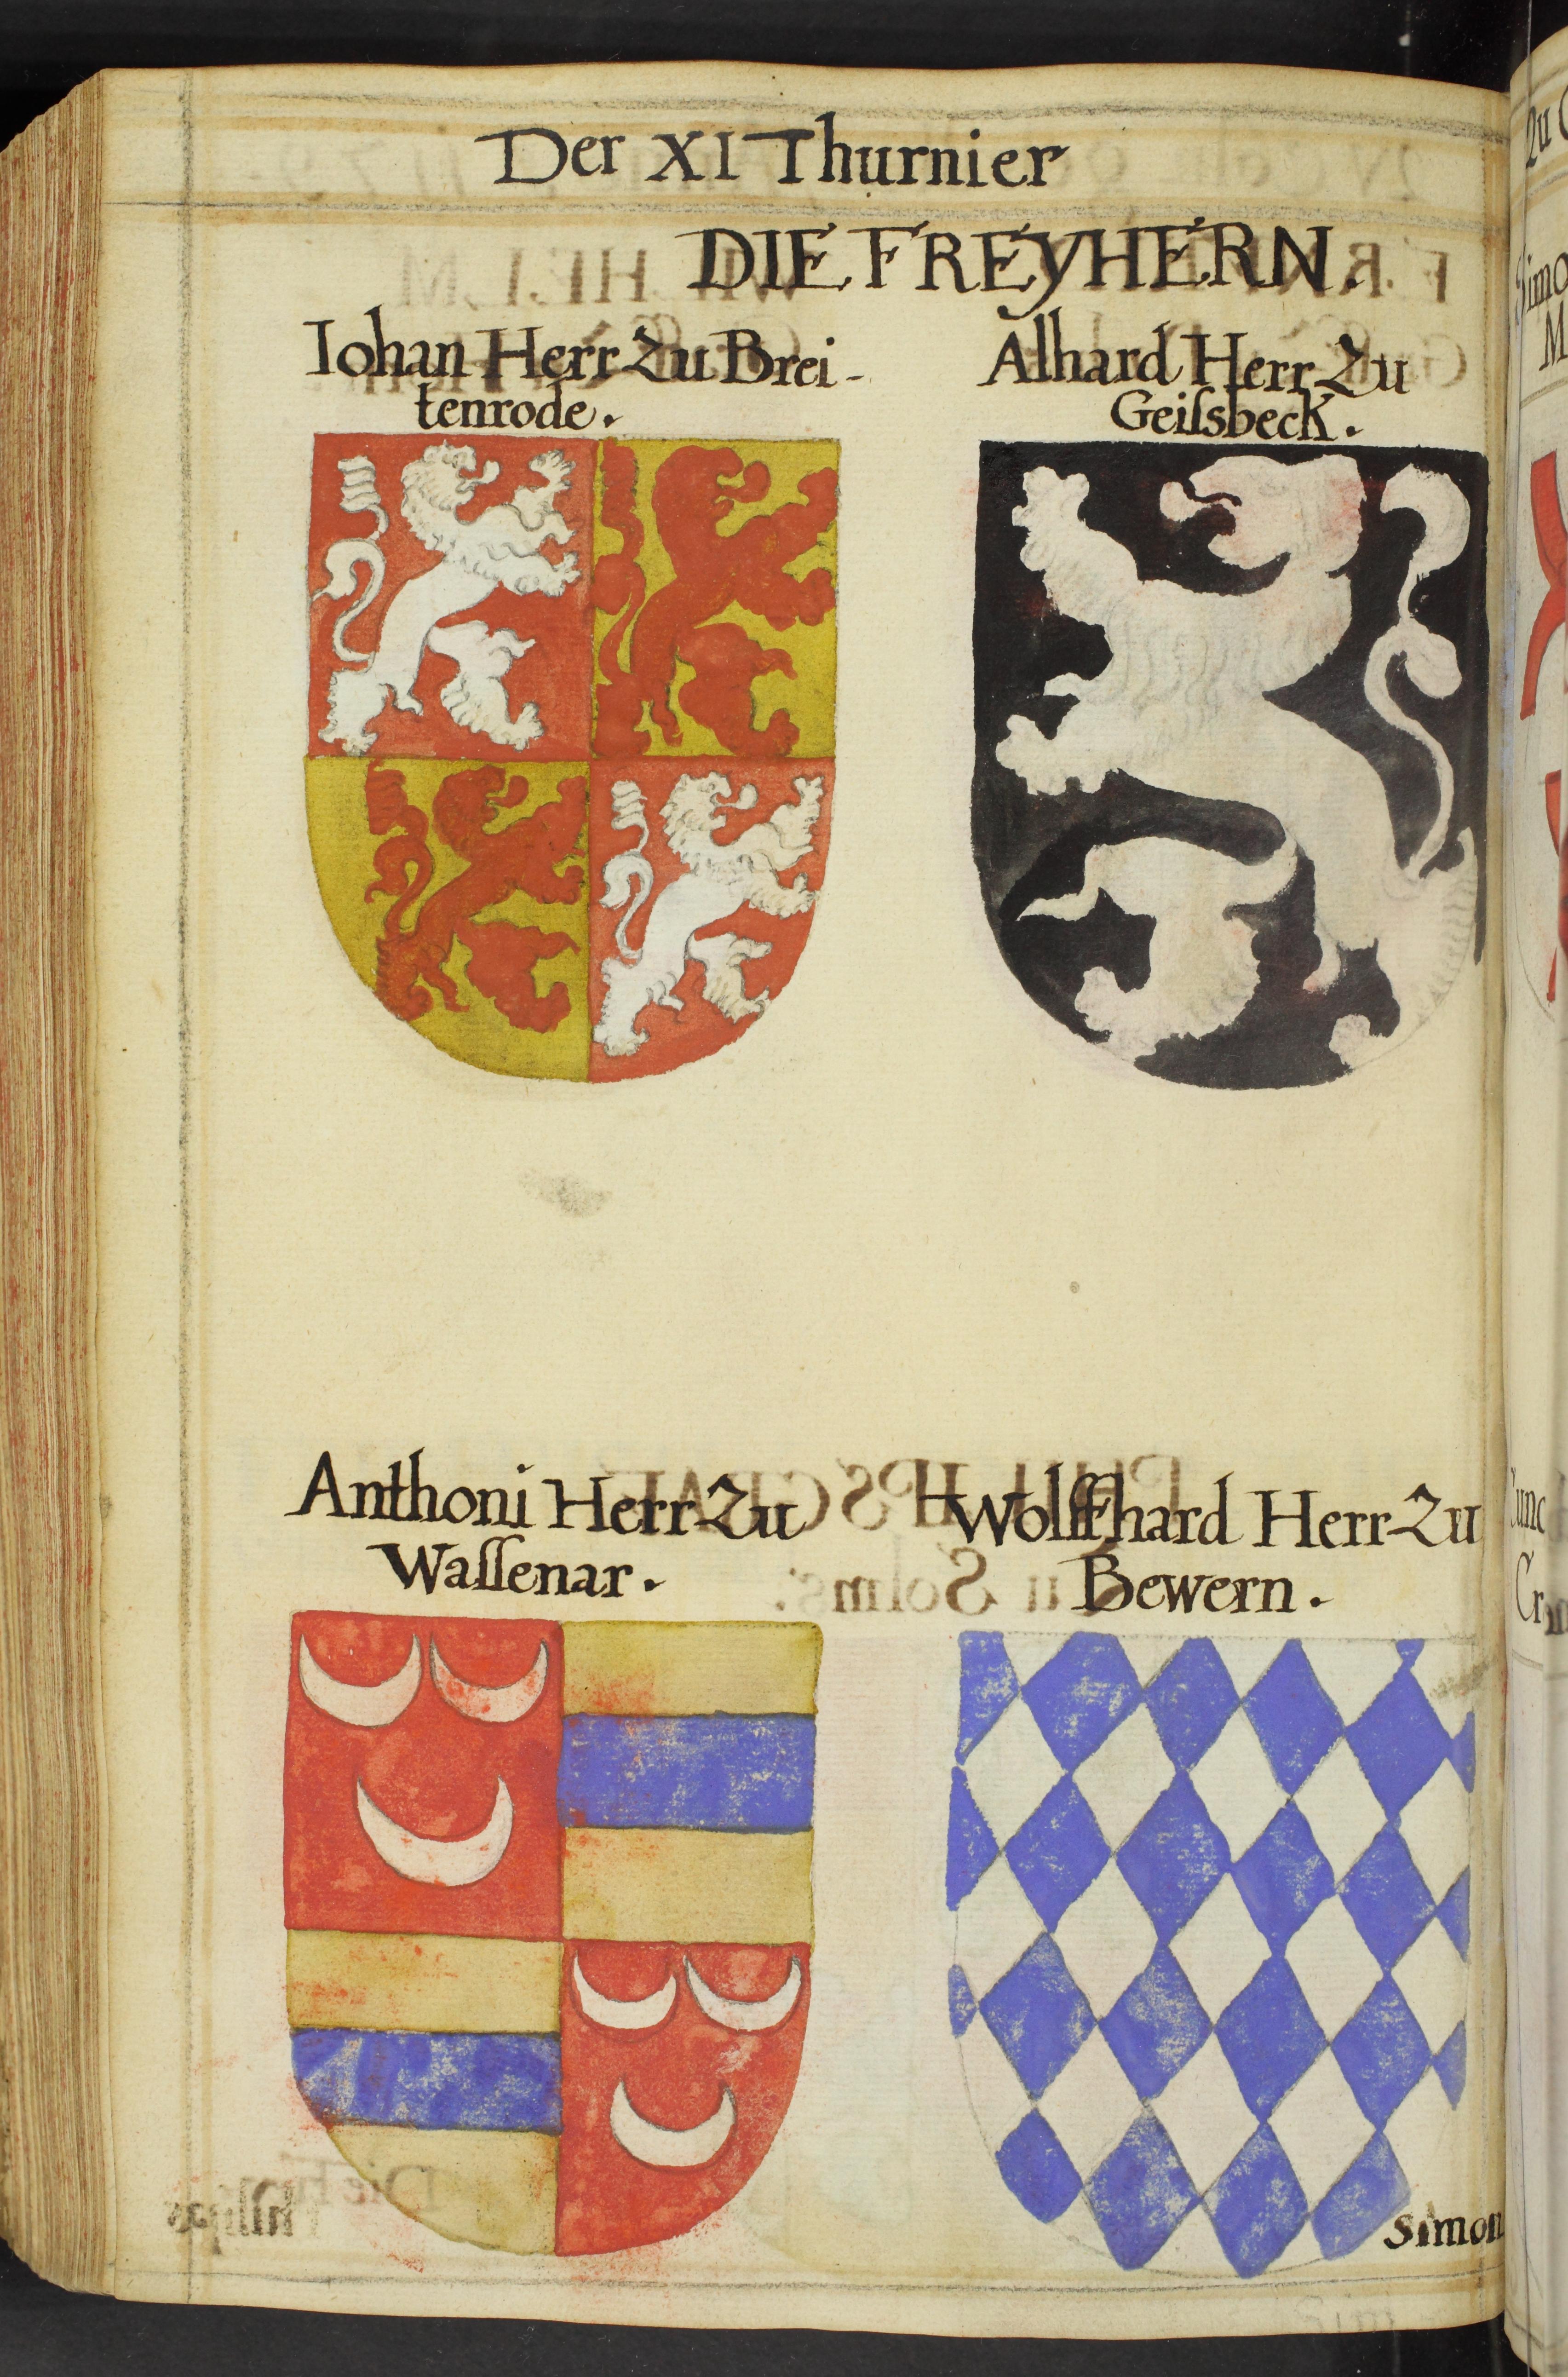 Der XI Thurnier
DIE FREyHERN.
Iohan Herr Zu Brei-
tenrode.
Alhard Herr Zu
Geiſsbeck.
Anthoni Herr Zu
Waſſenar.
Wolffhard Herr Zu
Bewern.
Simon